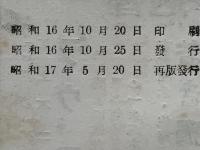 昭和16年10月20日 印刷
昭和16年10月25日 發行
昭和17年5月20日 再版發行